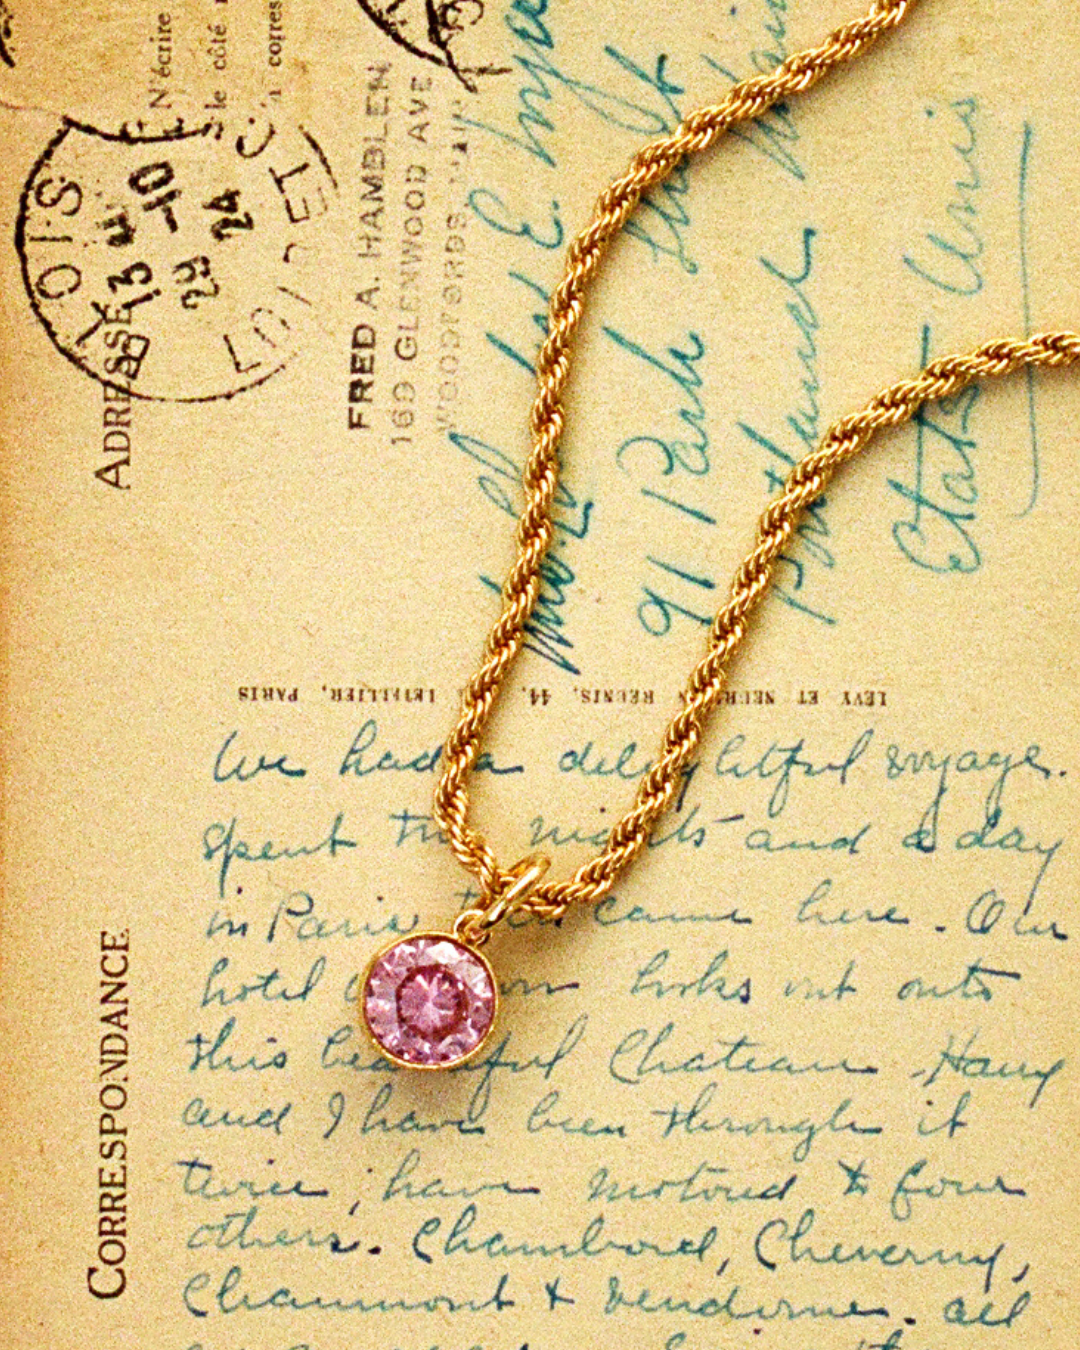 N'écrire
le côté
corres
LOIR ET
BLOIS
13 10
29 24
ADRESSE
FRED A. HAMBLEN
169 GLENWOOD AVE
WOODFORDS
E.
91 Park
Portland
Etats Unis
LEVY ET NEURDEIN REUNIS, 44, LETELLIER, PARIS
CORRESPONDANCE
We had a delightful voyage.
spent two nights and a day
in Paris then came here. Our
hotel looks out onto
this beautiful Chateau. Harry
and I have been through it
twice, have motored to four
others. Chambord, Cheverny,
Chaumont & Vendome. all